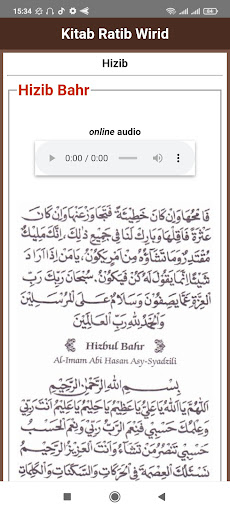 15:34
Kitab Ratib Wirid
Hizib
Hizib Bahr
online audio
0:00 / 0:00
فَامْحُهَا وَإِنْ كَانَ خَطِيْئَةً فَتَجَاوَزْ عَنْهَا وَإِنْ كَانَ
عَثْرَةً فَأَقِلْهَا وَبَارِكْ لَنَا فِي جَمِيْعِ ذٰلِكَ، إِنَّكَ مَلِيْكٌ
مُقْتَدِرٌ وَمَا تَشَاؤُهُ مِنْ أَمْرٍ يَكُوْنُ، يَا مَنْ إِذَا أَرَادَ
شَيْئًا إِنَّمَا يَقُوْلُ لَهُ كُنْ فَيَكُوْنُ. سُبْحَانَ رَبِّكَ رَبِّ
الْعِزَّةِ عَمَّا يَصِفُوْنَ وَسَلَامٌ عَلَى الْمُرْسَلِيْنَ
وَالْحَمْدُ لِلّٰهِ رَبِّ الْعَالَمِيْنَ
Hizbul Bahr
Al-Imam Abi Hasan Asy-Syadzili
بِسْمِ اللهِ الرَّحْمٰنِ الرَّحِيْمِ
اَللّٰهُمَّ يَا اَللهُ يَا عَلِيُّ يَا عَظِيْمُ يَا حَلِيْمُ يَا عَلِيْمُ أَنْتَ رَبِّيْ
وَعِلْمُكَ حَسْبِيْ فَنِعْمَ الرَّبُّ رَبِّيْ وَنِعْمَ الْحَسْبُ
حَسْبِيْ تَنْصُرُ مَنْ تَشَاءُ وَأَنْتَ الْعَزِيْزُ الرَّحِيْمُ
نَسْئَلُكَ الْعِصْمَةَ فِي الْحَرَكَاتِ وَالسَّكَنَاتِ وَالْكَلِمَاتِ